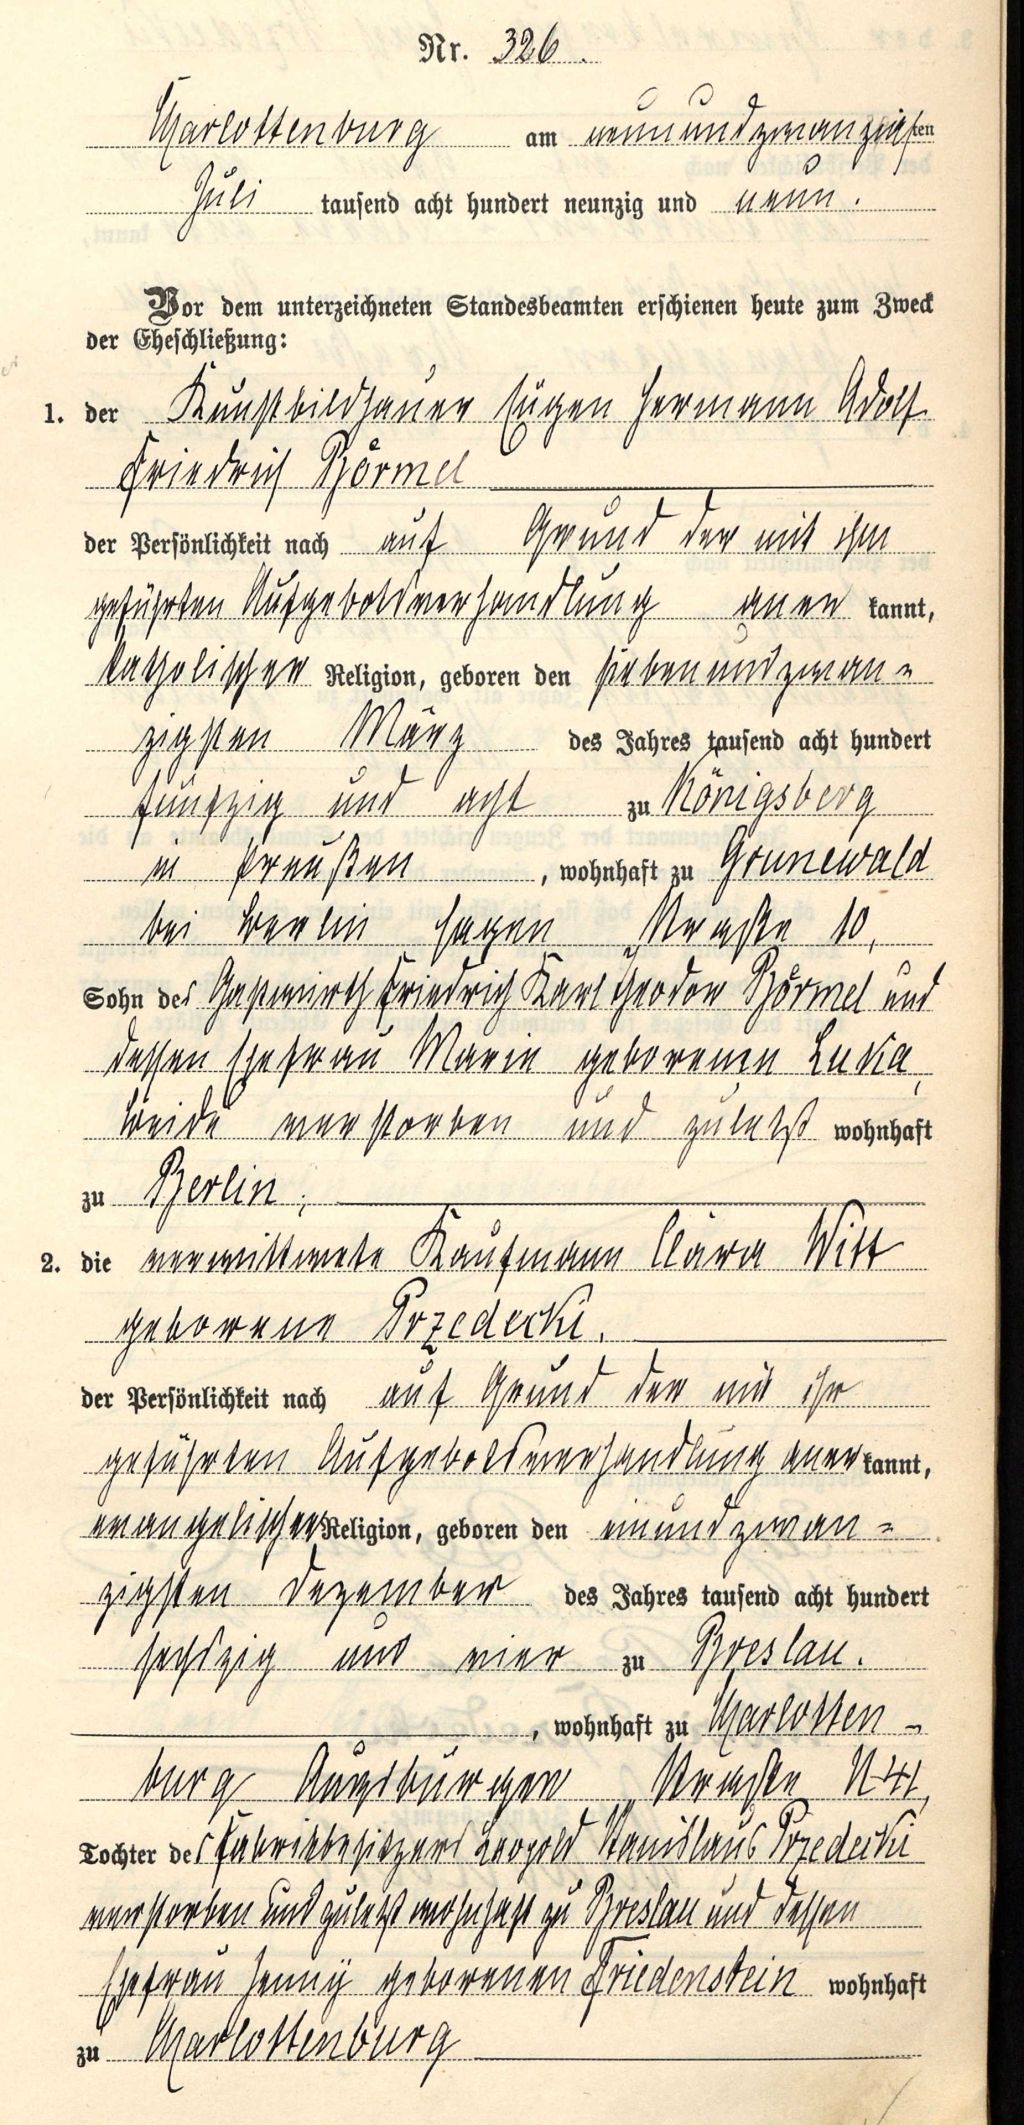 Nr. 326.
Charlottenburg am neunundzwanzigsten
Juli tausend acht hundert neunzig und neun.
Vor dem unterzeichneten Standesbeamten erschienen heute zum Zweck
der Eheschließung:
1. der Kunstbildhauer Eugen Hermann Adolf
Friedrich Börmel
der Persönlichkeit nach auf Grund der mit ihm
geführten Aufgebotsverhandlung aner kannt,
katholischer Religion, geboren den siebenundzwan=
zigsten März des Jahres tausend acht hundert
fünfzig und acht zu Königsberg
in Preußen, wohnhaft zu Grunewald
bei Berlin Hagen Straße 10,
Sohn des Gastwirth Friedrich Karl Theodor Börmel und
dessen Ehefrau Marie geborenen Luka,
beide verstorben und zuletzt wohnhaft
zu Berlin;
2. die verwittwete Kaufmann Clara Witt
geborene Przedecki.
der Persönlichkeit nach auf Grund der mit ihr
geführten Aufgebotsverhandlung aner kannt,
evangelischer Religion, geboren den einundzwan=
zigsten Dezember des Jahres tausend acht hundert
sechszig und vier zu Breslau.
, wohnhaft zu Charlotten-
burg Augsburger Straße
Tochter des Fabrikbesitzers Leopold Stanislaus Przedecki
verstorben und zuletzt wohnhaft zu Breslau und dessen
Ehefrau Jenny geborenen Friedenstein wohnhaft
zu Charlottenburg